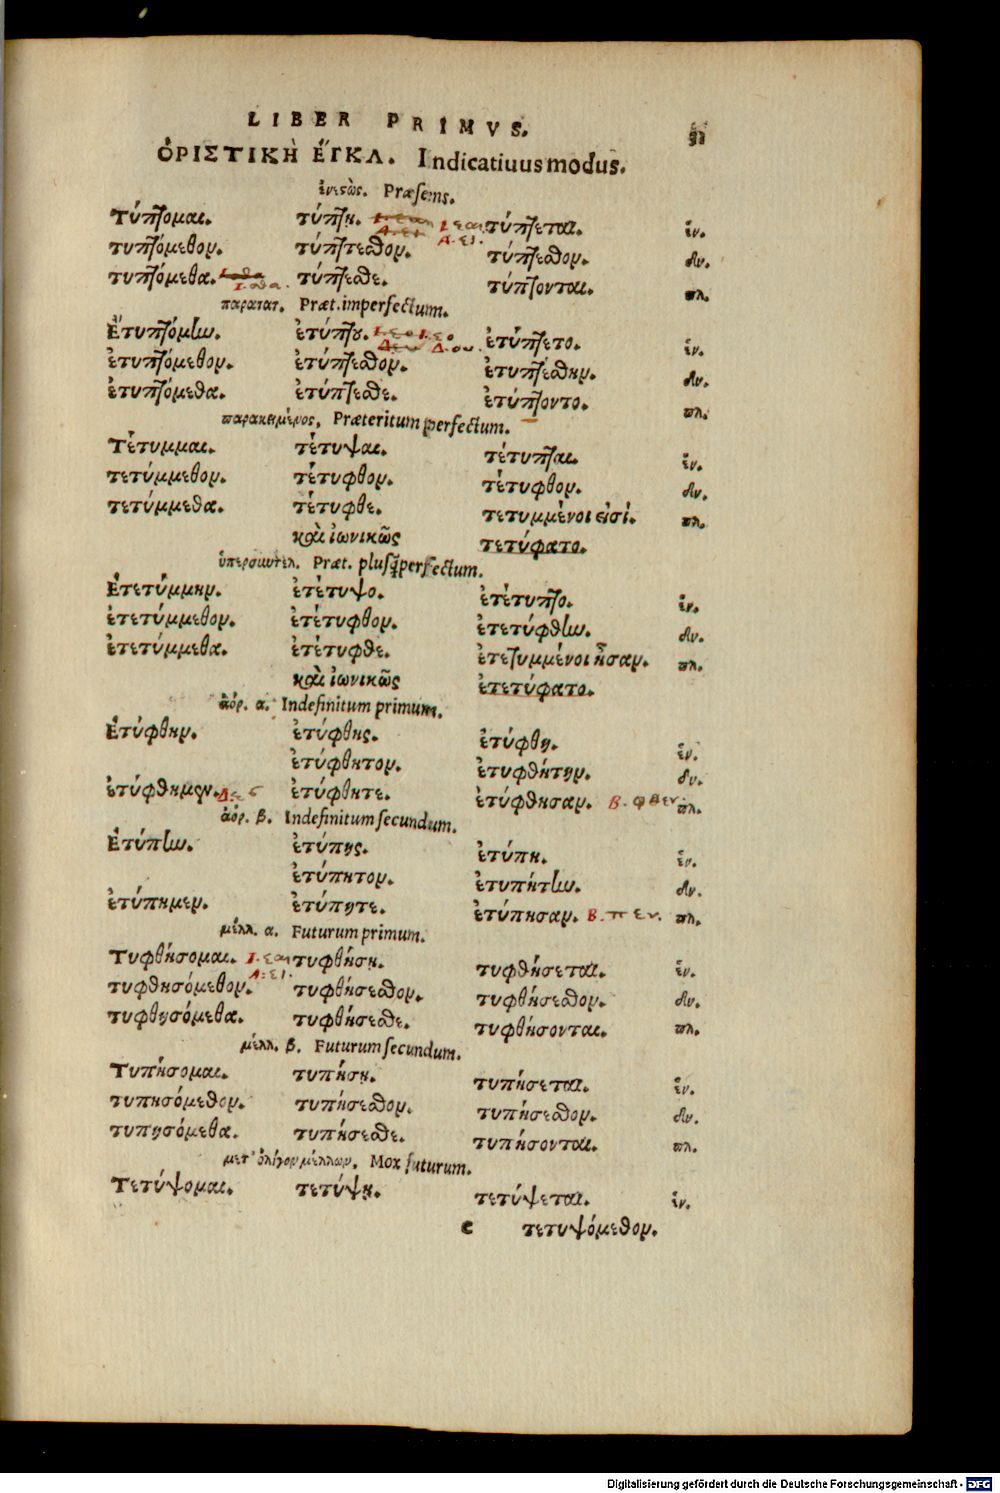 LIBER PRIMVS.
ὉΡΙΣΤΙΚῊ ἜΓΚΛ. Indicatiuus modus.
ἐνεστὼς. Præsens.
Τύπτομαι. τύπτῃ. Ι.εαι Α.ΕΙ. τύπτεται. ἑν.
τυπτόμεθον. τύπτεσθον. τύπτεσθον. δυ.
τυπτόμεθα. Ι.εσθα. τύπτεσθε. τύπτονται. πλ.
παρατατ. Præt. imperfectum.
Ἐτυπτόμην. ἐτύπτου. Ι.εο Δ.ευ. ἐτύπτετο. ἑν.
ἐτυπτόμεθον. ἐτύπτεσθον. ἐτυπτέσθην. δυ.
ἐτυπτόμεθα. ἐτύπτεσθε. ἐτύπτοντο. πλ.
παρακείμενος. Præteritum perfectum.
Τέτυμμαι. τέτυψαι. τέτυπται. ἑν.
τετύμμεθον. τέτυφθον. τέτυφθον. δυ.
τετύμμεθα. τέτυφθε. τετυμμένοι εἰσί. πλ.
καὶ ἰωνικῶς τετύφατο.
ὑπερσυντελ. Præt. plusq̃perfectum.
Ἐτετύμμην. ἐτέτυψο. ἐτέτυπτο. ἑν.
ἐτετύμμεθον. ἐτέτυφθον. ἐτετύφθην. δυ.
ἐτετύμμεθα. ἐτέτυφθε. ἐτετυμμένοι ἦσαν. πλ.
καὶ ἰωνικῶς ἐτετύφατο.
ἀόρ. α. Indefinitum primum.
Ἐτύφθην. ἐτύφθης. ἐτύφθη. ἑν.
ἐτύφθητον. ἐτυφθήτην. δυ.
ἐτύφθημεν. Δ.ες ἐτύφθητε. ἐτύφθησαν. Β. φθεν. πλ.
ἀόρ. β. Indefinitum secundum.
Ἐτύπην. ἐτύπης. ἐτύπη. ἑν.
ἐτύπητον. ἐτυπήτην. δυ.
ἐτύπημεν. ἐτύπητε. ἐτύπησαν. Β. πεν. πλ.
μέλλ. α. Futurum primum.
Τυφθήσομαι. Ι.εαι Α:ΕΙ. τυφθήσῃ. τυφθήσεται. ἑν.
τυφθησόμεθον. τυφθήσεσθον. τυφθήσεσθον. δυ.
τυφθησόμεθα. τυφθήσεσθε. τυφθήσονται. πλ.
μέλλ. β. Futurum secundum.
Τυπήσομαι. τυπήσῃ. τυπήσεται. ἑν.
τυπησόμεθον. τυπήσεσθον. τυπήσεσθον. δυ.
τυπησόμεθα. τυπήσεσθε. τυπήσονται. πλ.
μετ' ὀλίγον μέλλων. Mox futurum.
Τετύψομαι. τετύψῃ. τετύψεται. ἑν.
e τετυψόμεθον.
Digitalisierung gefördert durch die Deutsche Forschungsgemeinschaft - DFG